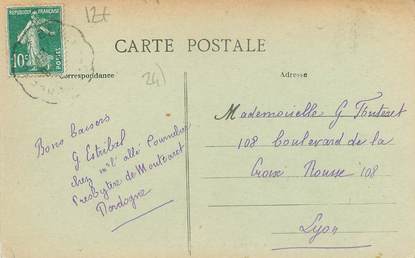 12t
REPUBLIQUE FRANÇAISE
10c
POSTES
CARTE POSTALE
Correspondance
24)
Adresse
Bons baisers
G Estribel
chez Mr l'abbé
Presbytère de
Dordogne
Mademoiselle G
108 boulevard de la
Croix Rousse 108
Lyon